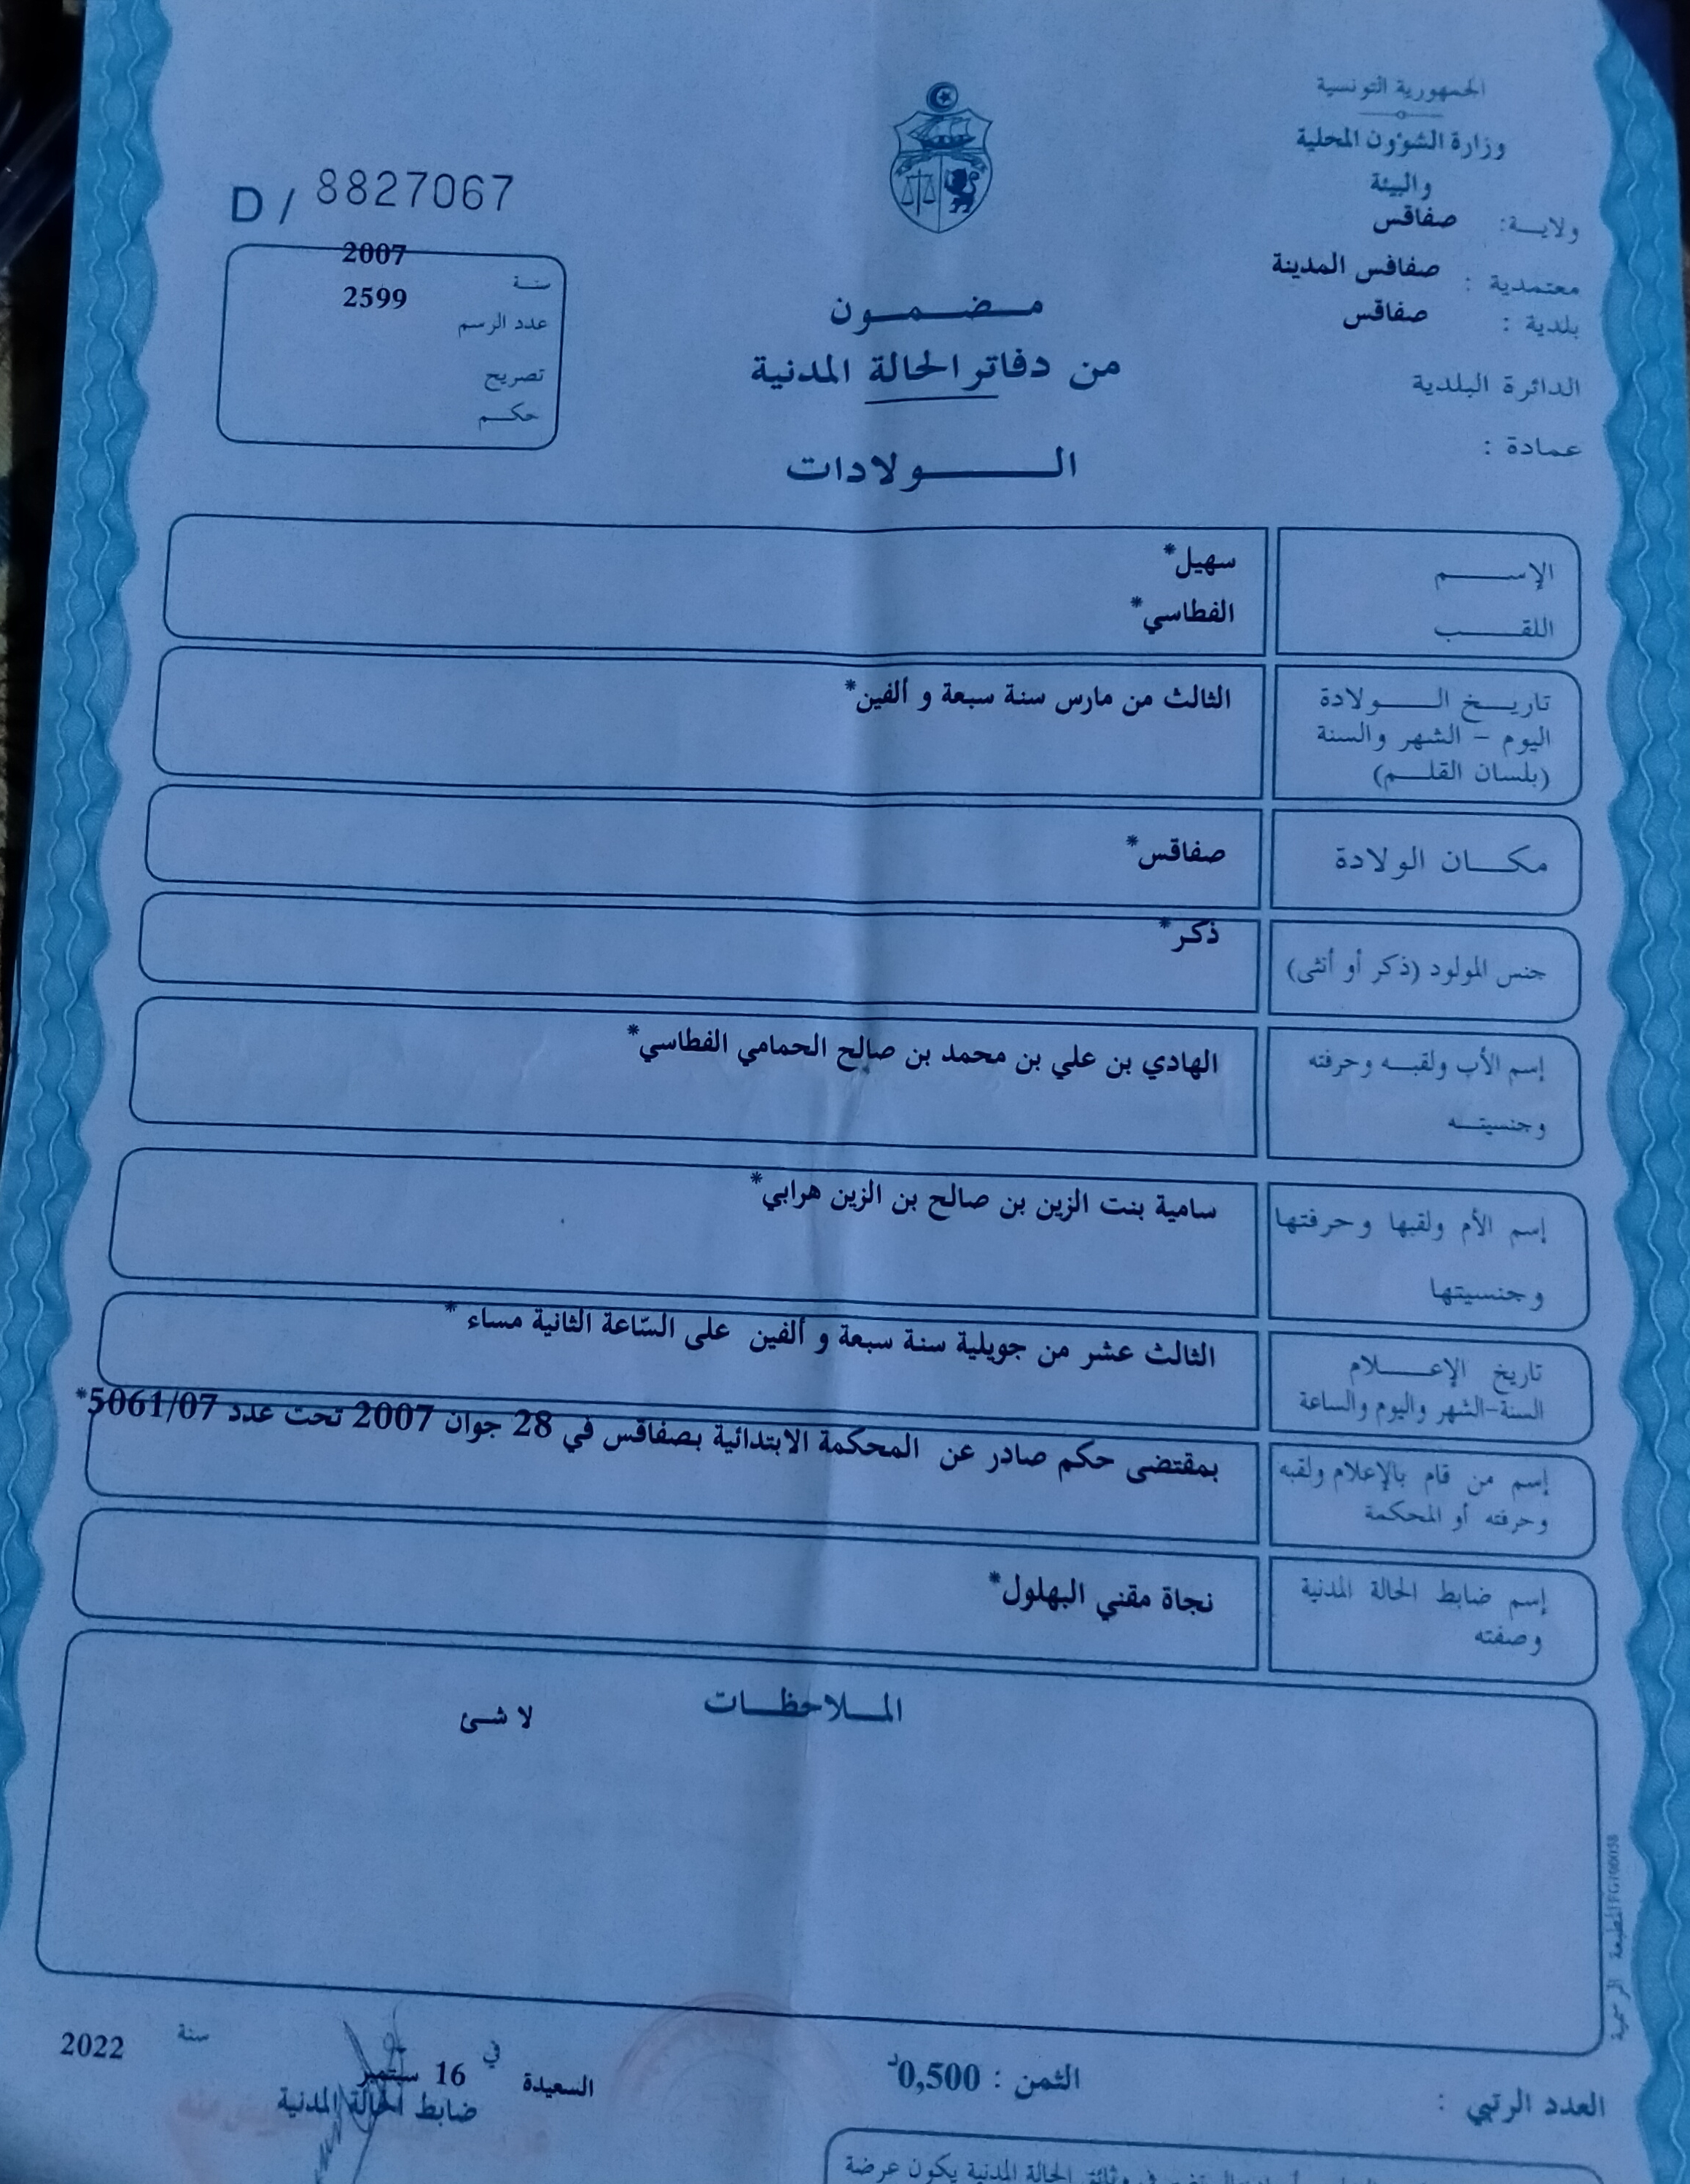 الجمهورية التونسية
وزارة الشؤون المحلية
والبيئة
ولايـــة: صفاقس
معتمدية : صفاقس المدينة
بلدية : صفاقس
الدائرة البلدية
عمادة :
مـــضـــمـــون
من دفاتر الحالة المدنية
الـــــــولادات
D / 8827067
سنـة 2007
عدد الرسم 2599
تصريح
حكـــم
الإســـــم سهيل*
اللقـــــب الفطاسي*
تاريـــخ الــــولادة الثالث من مارس سنة سبعة و ألفين*
اليوم – الشهر والسنة
(بلسان القلــم)
مكـــان الولادة صفاقس*
جنس المولود (ذكر أو أنثى) ذكر*
إسم الأب ولقبـــه وحرفته الهادي بن علي بن محمد بن صالح الحمامي الفطاسي*
وجنسيتـــه
إسم الأم ولقبها وحرفتها سامية بنت الزين بن صالح بن الزين هرابي*
وجنسيتها
تاريخ الإعــــلام الثالث عشر من جويلية سنة سبعة و ألفين على السّاعة الثانية مساء *
السنة-الشهر واليوم والساعة
إسم من قام بالإعلام ولقبه بمقتضى حكم صادر عن المحكمة الابتدائية بصفاقس في 28 جوان 2007 تحت عدد 5061/07*
وحرفته أو المحكمة
إسم ضابط الحالة المدنية نجاة مقني البهلول*
وصفته
المــلاحظـــات
لا شئ
السعيدة في 16 سبتمبر سنة 2022
ضابط الحالة المدنية
الثمن : 0,500د
العدد الرتبي :
وثائق الحالة المدنية يكون عرضة
المطبعة الرسمية